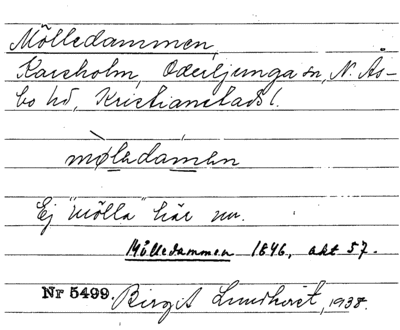 Mölledammen,
Karsholm, Oderljunga sn, N. Ås-
bo hd, Kristianstads l.
mølədàmən
Ej "mölla" här nu.
Mölledammen 1846, akt 57.
Nr 5499. Birgit Lundkvist, 1938.